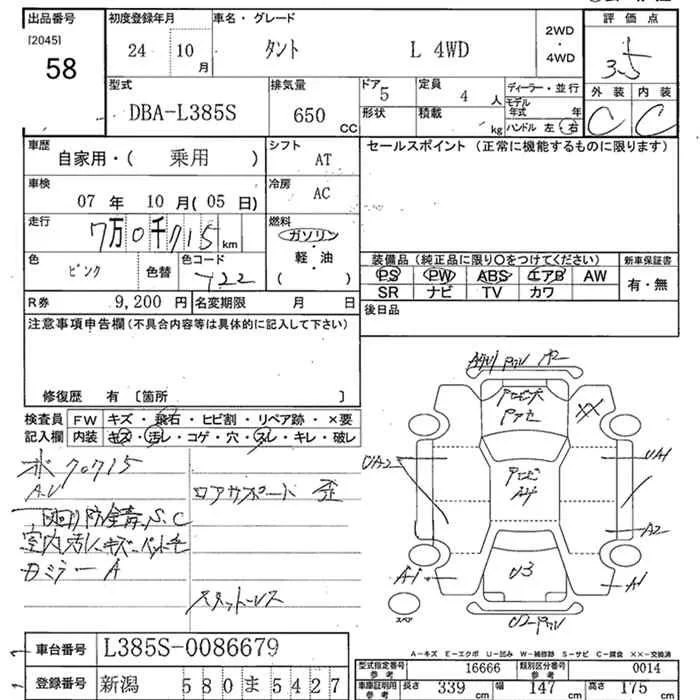 出品番号
[2045]
58
初度登録年月
24 10 月
車名・グレード
タント L 4WD
2WD
・
4WD
評価点
3.5
外装 内装
C C
型式
DBA-L385S
排気量
650 CC
ドア 5
形状
定員 4 人
積載 kg
ディーラー・並行
モデル年式 年
ハンドル 左・右
車歴
自家用・( 乗用 )
シフト
AT
セールスポイント (正常に機能するものに限ります)
車検
07 年 10 月 (05 日)
冷房
AC
走行
7万0千715 km
燃料
ガソリン
・
軽・油
( )
色
ピンク
色替
色コード
Y22
装備品 (純正品に限り〇をつけてください)
PS PW ABS エアB AW
SR ナビ TV カワ
新車保証書
有・無
R券 9,200 円
名変期限 月 日
後日品
注意事項申告欄 (不具合内容等は具体的に記入して下さい)
修復歴 有 [箇所 ]
検査員
記入欄
FW キズ・飛石・ヒビ割・リペア跡・×要
内装 キズ・汚レ・コゲ・穴・スレ・キレ・破レ
70715
ロアサポート 歪
下回り防錆 S.C
室内汚レキズ
カミラー A
スタットレス
XX
UA2
UA1
A2
U3
A1
A1
スペア
A-キズ E-エクボ U-凹み W-補修跡 S-サビ C-腐食 ××-交換済
車台番号 L385S-0086679
登録番号 新潟 580 ま 5427
型式指定番号 参考 16666
類別区分番号 参考 0014
車庫証明用 参考 長さ 339 cm 幅 147 cm 高さ 175 cm